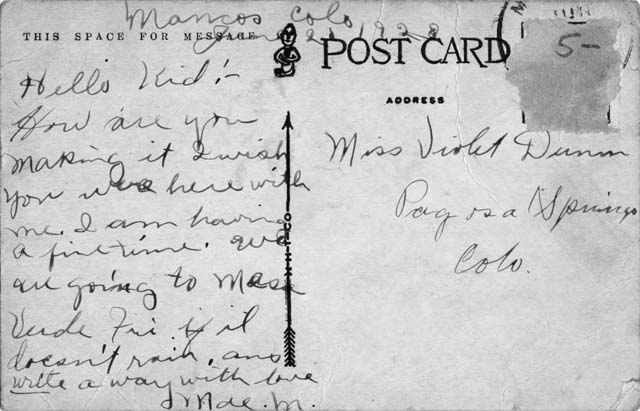 Mancos Colo
1928
THIS SPACE FOR MESSAGE
POST CARD
5-
ADDRESS
Hello Kid!-
How are you
making it I wish
you were here with
me. I am having
a fine time. We
are going to Mesa
Verde Fri if it
doesn't rain, ans
write a way with love
Mae. M.
Miss Violet Dunn
Pagosa Springs
Colo.